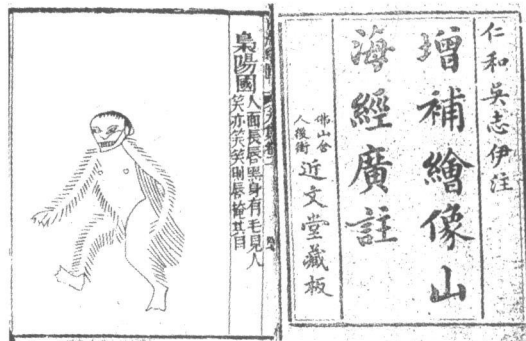 仁和吳志伊注
增補繪像山
海經廣註
佛山舍
人後街
近文堂藏板
梟陽國
人面長唇黑身有毛見人
笑亦笑笑則唇掩其目